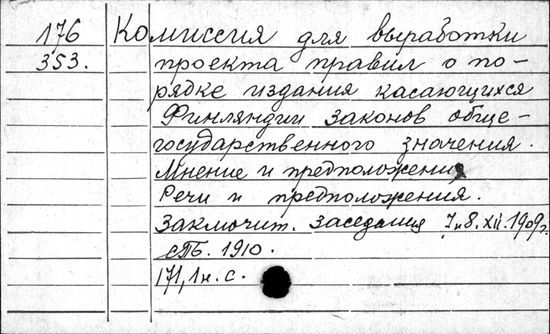 176 Комиссия для выработки
353. проекта правил о по-
рядке издания касающихся
Финляндии законов обще-
государственного значения.
Мнение и предположения
Речи и предположения.
Заключит. заседания 7 и 8.XII.1909г.
СПБ. 1910.
171, 1 н. с.